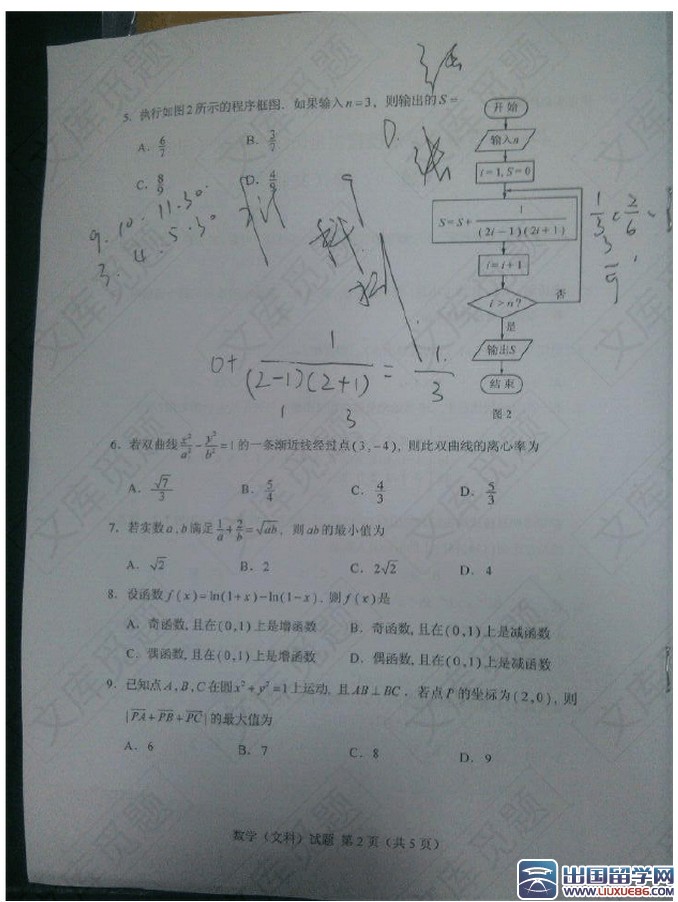 5. 执行如图2所示的程序框图．如果输入n=3，则输出的S=
A. 6/7 B. 3/7
C. 8/9 D. 4/9
开始
输入n
i=1, S=0
S=S+1/((2i-1)(2i+1))
i=i+1
i>n?
否
是
输出S
结束
图2
D.
9. 10. 11.30
3. 4. 5.30
0+ 1/((2-1)(2+1)) = 1/3
1 3
1/3 2/6
3/9
6. 若双曲线x²/a²-y²/b²=1的一条渐近线经过点(3,-4)，则此双曲线的离心率为
A. √7/3 B. 5/4 C. 4/3 D. 5/3
7. 若实数a,b满足1/a+2/b=√ab，则ab的最小值为
A. √2 B. 2 C. 2√2 D. 4
8. 设函数f(x)=ln(1+x)-ln(1-x)，则f(x)是
A. 奇函数,且在(0,1)上是增函数 B. 奇函数,且在(0,1)上是减函数
C. 偶函数,且在(0,1)上是增函数 D. 偶函数,且在(0,1)上是减函数
9. 已知点A,B,C在圆x²+y²=1上运动,且AB⊥BC．若点P的坐标为(2,0)，则
|PA+PB+PC|的最大值为
A. 6 B. 7 C. 8 D. 9
数学（文科）试题 第2页（共5页）
出国留学网
www.liuxue86.com